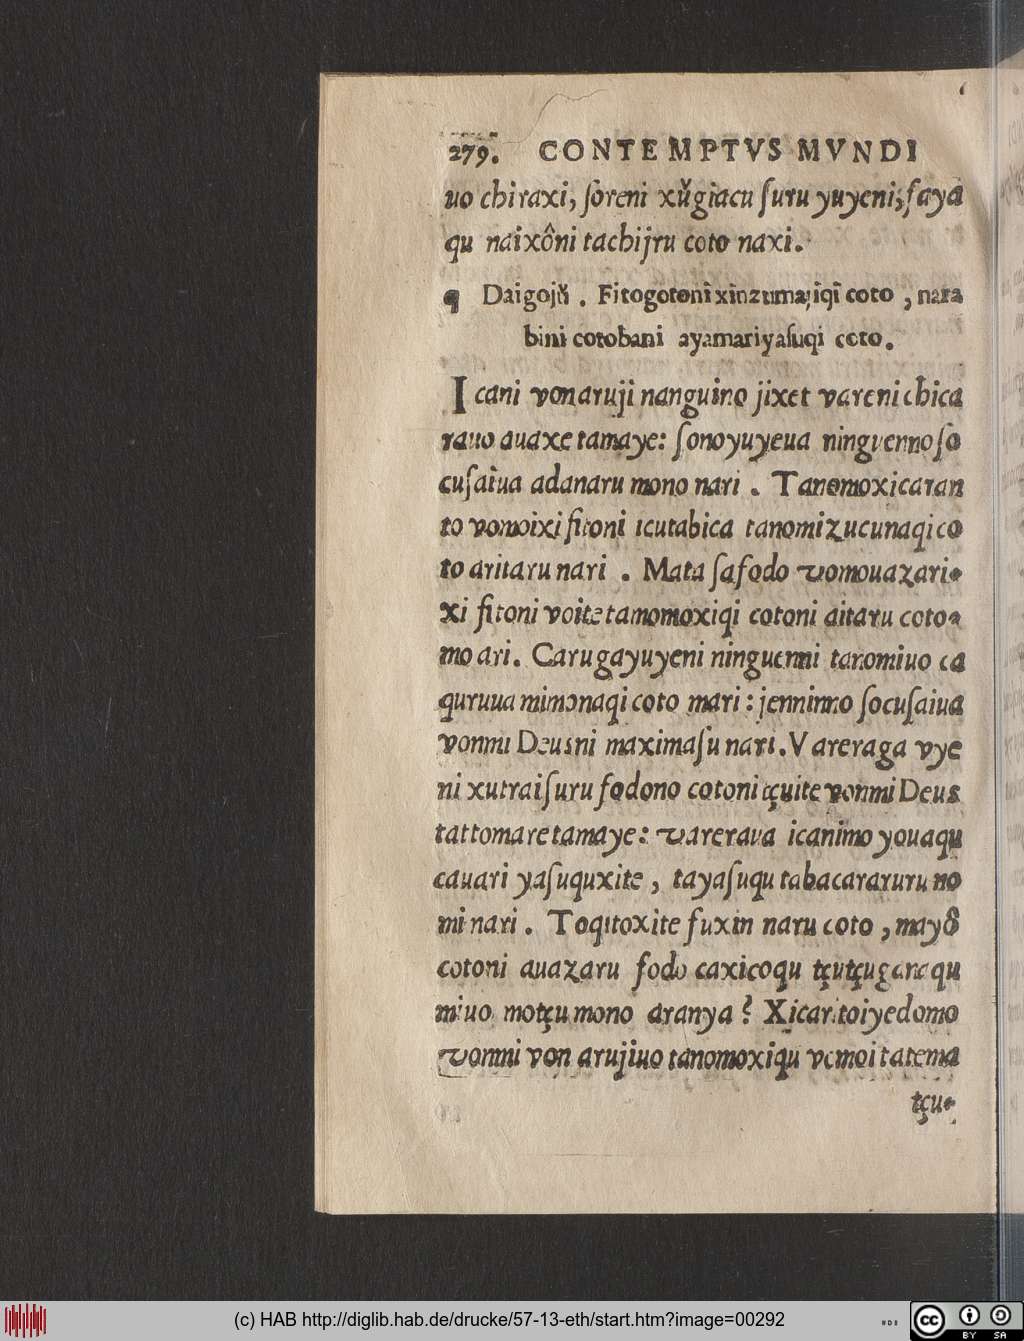 279. CONTEMPTVS MVNDI
uo chiraxi, soreni xŭgiacu suru yuyeni, saya
qu naixôni tachijru coto naxi.
¶ Daigojŭ. Fitogotoni xinzumajiqi coto, nara
bini cotobani ayamariyasuqi coto.
Icani vonaruji nanguino jixet vareni chica
rauo auaxe tamaye: sono yuyeua ninguenno so
cusaiua adanaru mono nari. Tanomoxicaran
to vomoixi fitoni icutabica tanomizucunaqi co
to aritaru nari. Mata safodo vomouazari-
xi fitoni voite tamomoxiqi cotoni aitaru coto-
mo ari. Caruga yuyeni ninguenni tanomiuo ca
quruua mimonaqi coto mari: jenninno socusaiua
vonmi Deusni maximasu nari. Vareraga vye
ni xutrai suru fodono cotoni tçuite vonmi Deus
tattomare tamaye: varerava icanimo youaqu
cauari yasuquxite, tayasuqu tabacararuru no
mi nari. Toqitoxite fuxin naru coto, mayô
cotoni auazaru fodo caxicoqu tçutçuganaqu
miuo motçu mono aranya? Xicaritoiyedomo
vonmi von arujiuo tanomoxiqu vomoi tatema
tçu-
(c) HAB http://diglib.hab.de/drucke/57-13-eth/start.htm?image=00292
cc BY SA